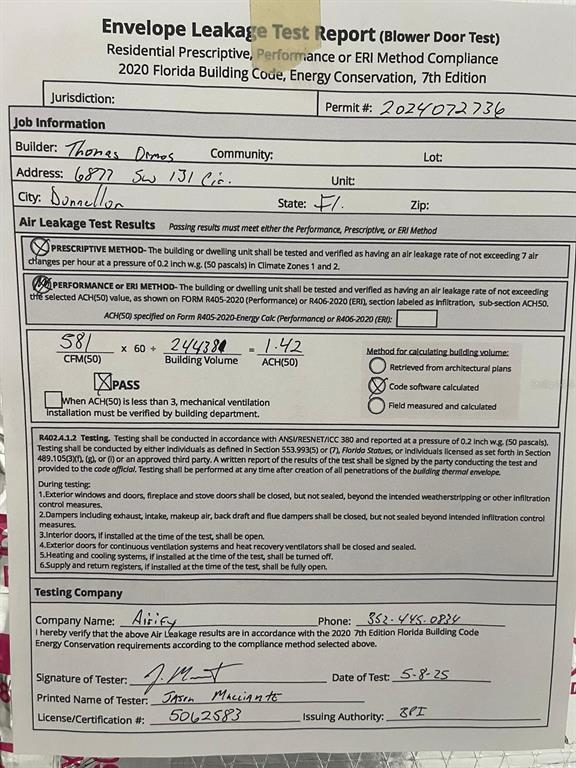 Envelope Leakage Test Report (Blower Door Test)
Residential Prescriptive, Performance or ERI Method Compliance
2020 Florida Building Code, Energy Conservation, 7th Edition
Jurisdiction: Permit #: 2024072736
Job Information
Builder: Thomas Dimos Community: Lot:
Address: 6877 SW 131 Cir. Unit:
City: Dunnellon State: Fl. Zip:
Air Leakage Test Results Passing results must meet either the Performance, Prescriptive, or ERI Method
PRESCRIPTIVE METHOD- The building or dwelling unit shall be tested and verified as having an air leakage rate of not exceeding 7 air
changes per hour at a pressure of 0.2 inch w.g. (50 pascals) in Climate Zones 1 and 2.
PERFORMANCE or ERI METHOD- The building or dwelling unit shall be tested and verified as having an air leakage rate of not exceeding
the selected ACH(50) value, as shown on FORM R405-2020 (Performance) or R406-2020 (ERI), section labeled as infiltration, sub-section ACH50.
ACH(50) specified on Form R405-2020-Energy Calc (Performance) or R406-2020 (ERI):
581 x 60 ÷ 24438 = 1.42
CFM(50) Building Volume ACH(50)
PASS
When ACH(50) is less than 3, mechanical ventilation
installation must be verified by building department.
Method for calculating building volume:
Retrieved from architectural plans
Code software calculated
Field measured and calculated
R402.4.1.2 Testing. Testing shall be conducted in accordance with ANSI/RESNET/ICC 380 and reported at a pressure of 0.2 inch w.g. (50 pascals).
Testing shall be conducted by either individuals as defined in Section 553.993(5) or (7), Florida Statues, or individuals licensed as set forth in Section
489.105(3)(f), (g), or (i) or an approved third party. A written report of the results of the test shall be signed by the party conducting the test and
provided to the code official. Testing shall be performed at any time after creation of all penetrations of the building thermal envelope.
During testing:
1.Exterior windows and doors, fireplace and stove doors shall be closed, but not sealed, beyond the intended weatherstripping or other infiltration
control measures.
2.Dampers including exhaust, intake, makeup air, back draft and flue dampers shall be closed, but not sealed beyond intended infiltration control
measures.
3.Interior doors, if installed at the time of the test, shall be open.
4.Exterior doors for continuous ventilation systems and heat recovery ventilators shall be closed and sealed.
5.Heating and cooling systems, if installed at the time of the test, shall be turned off.
6.Supply and return registers, if installed at the time of the test, shall be fully open.
Testing Company
Company Name: Airify Phone: 352-445-0834
I hereby verify that the above Air Leakage results are in accordance with the 2020 7th Edition Florida Building Code
Energy Conservation requirements according to the compliance method selected above.
Signature of Tester: Date of Test: 5-8-25
Printed Name of Tester: Jason Macciante
License/Certification #: 5062583 Issuing Authority: BPI